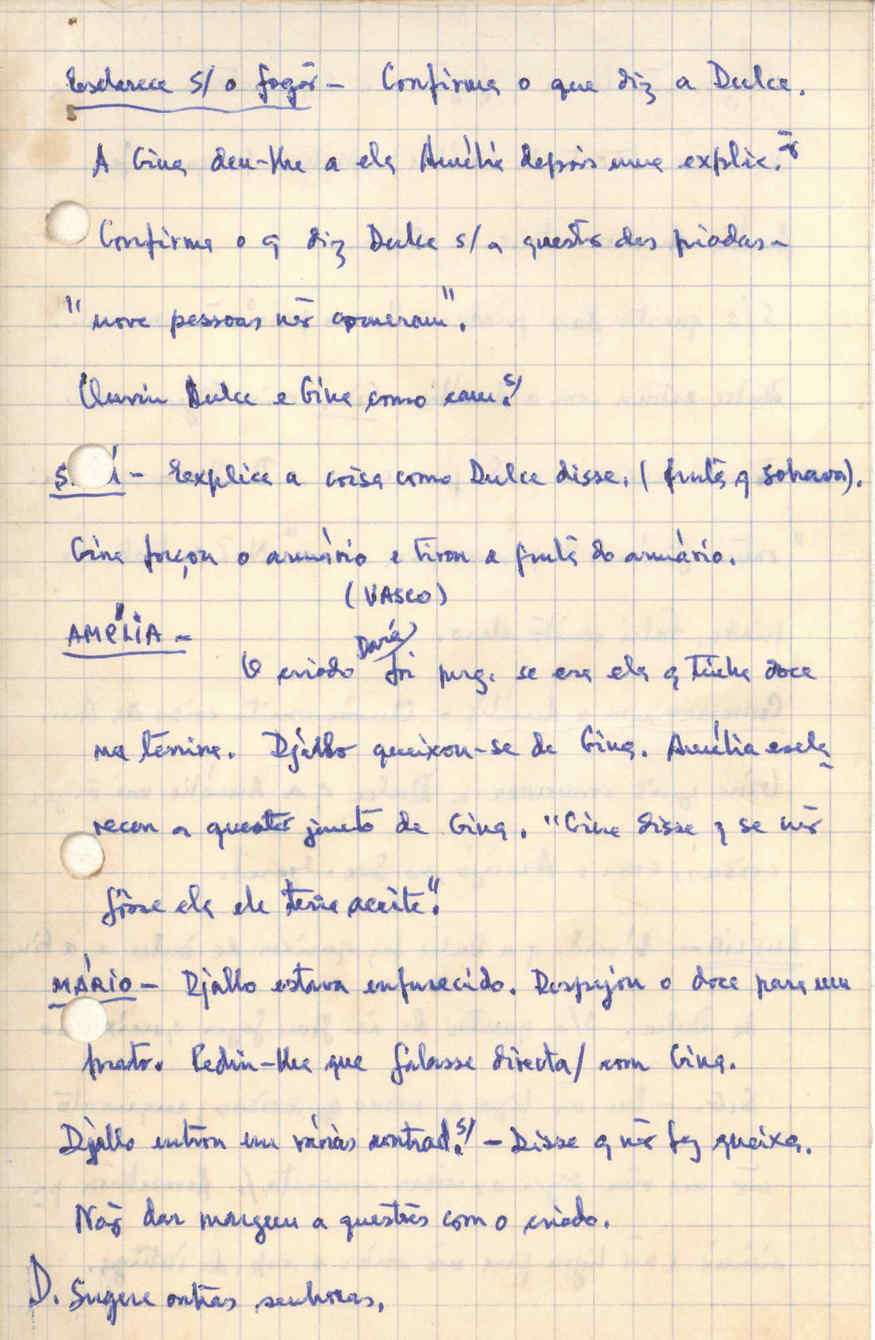 Esclarece s/ o fogão – Confirma o que diz a Dulce.
A Gina deu-lhe a ela Amélia depois uma explic.ão
Confirma o q diz Dulce s/ a questão das piadas –
"nove pessoas não comeram".
Ouviu Dulce e Gina como cam.s/
S. Á – Explica a coisa como Dulce disse. (fruta q sobrava).
Gina forçou o armário e tirou a fruta do armário.
(VASCO)
AMÉLIA –
Dará
O criado foi perg. se era ela q tinha doce
na terrina. Djallo queixou-se da Gina. Amélia escla-
receu a questão junto da Gina. "Gina disse q se não
fôsse ela ele teria aceite".
MÁRIO – Djallo estava enfurecido. Despejou o doce para um
prato. Pediu-lhe que falasse directa/ com Gina.
Djallo entrou em várias contrad.s/ – Disse q não fez queixa.
Não dar margem a questões com o criado.
D. Sugere outras senhoras.